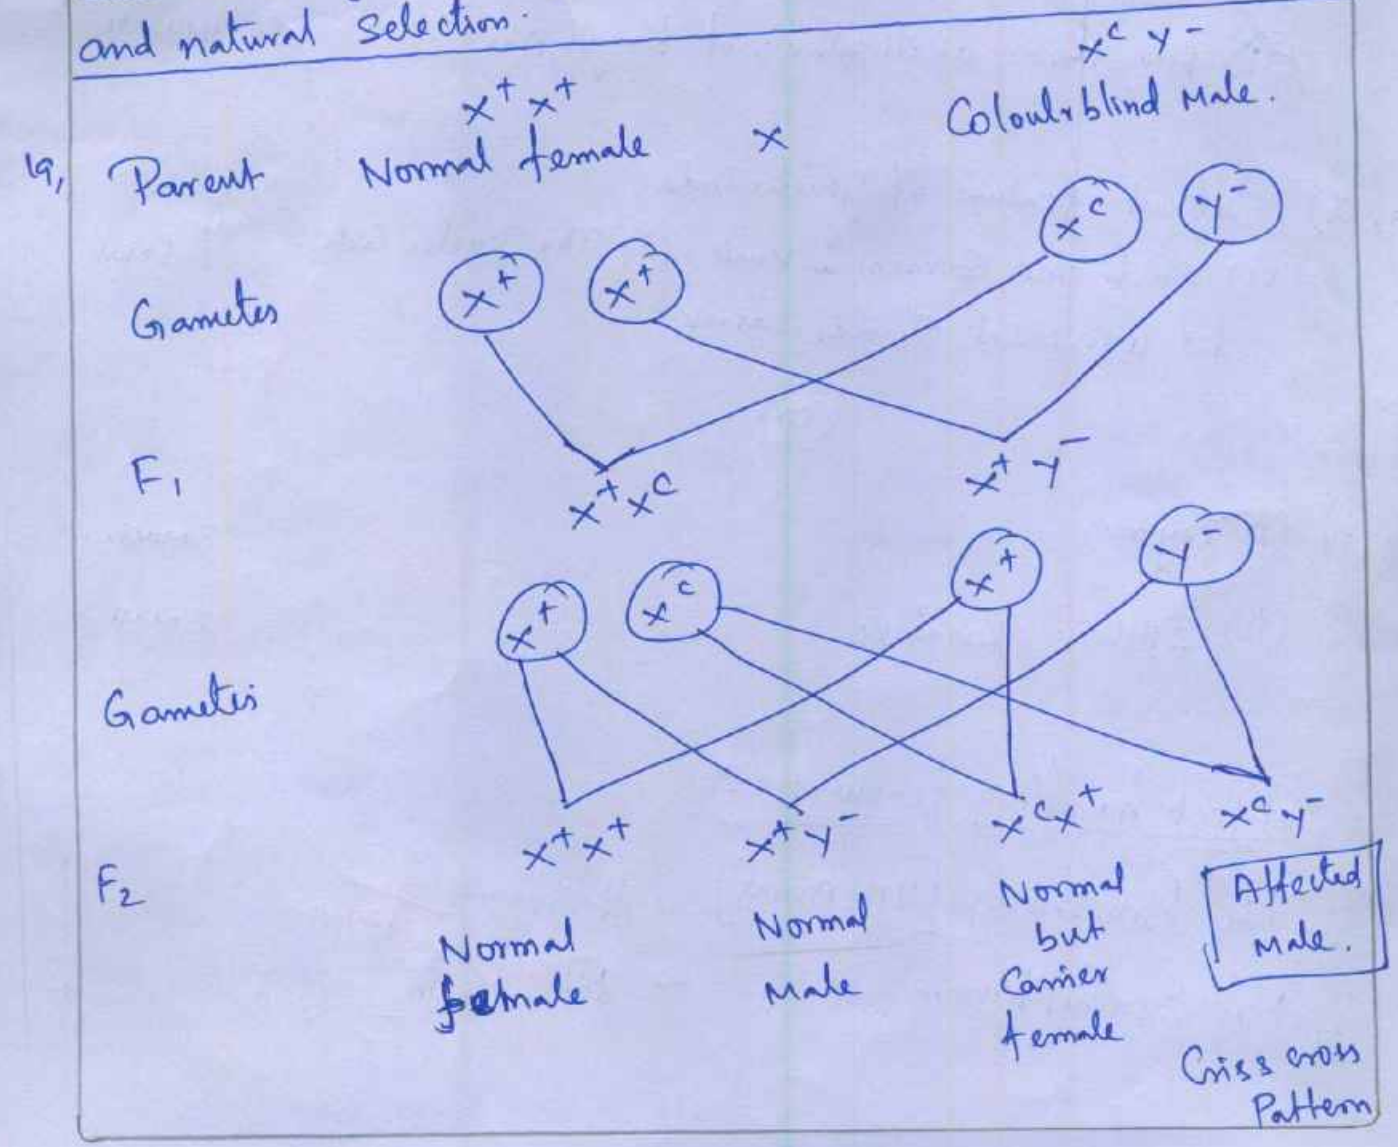 and natural selection.
x⁺ x⁺
xᶜ y⁻
19, Parent Normal female x Colourblind Male.
Gametes x⁺ x⁺ xᶜ y⁻
F₁ x⁺xᶜ x⁺ y⁻
Gametes x⁺ xᶜ x⁺ y⁻
F₂ x⁺x⁺ x⁺y⁻ xᶜx⁺ xᶜy⁻
Normal
female
Normal
Male
Normal
but
Carrier
female
Affected
Male.
Criss cross
Pattern